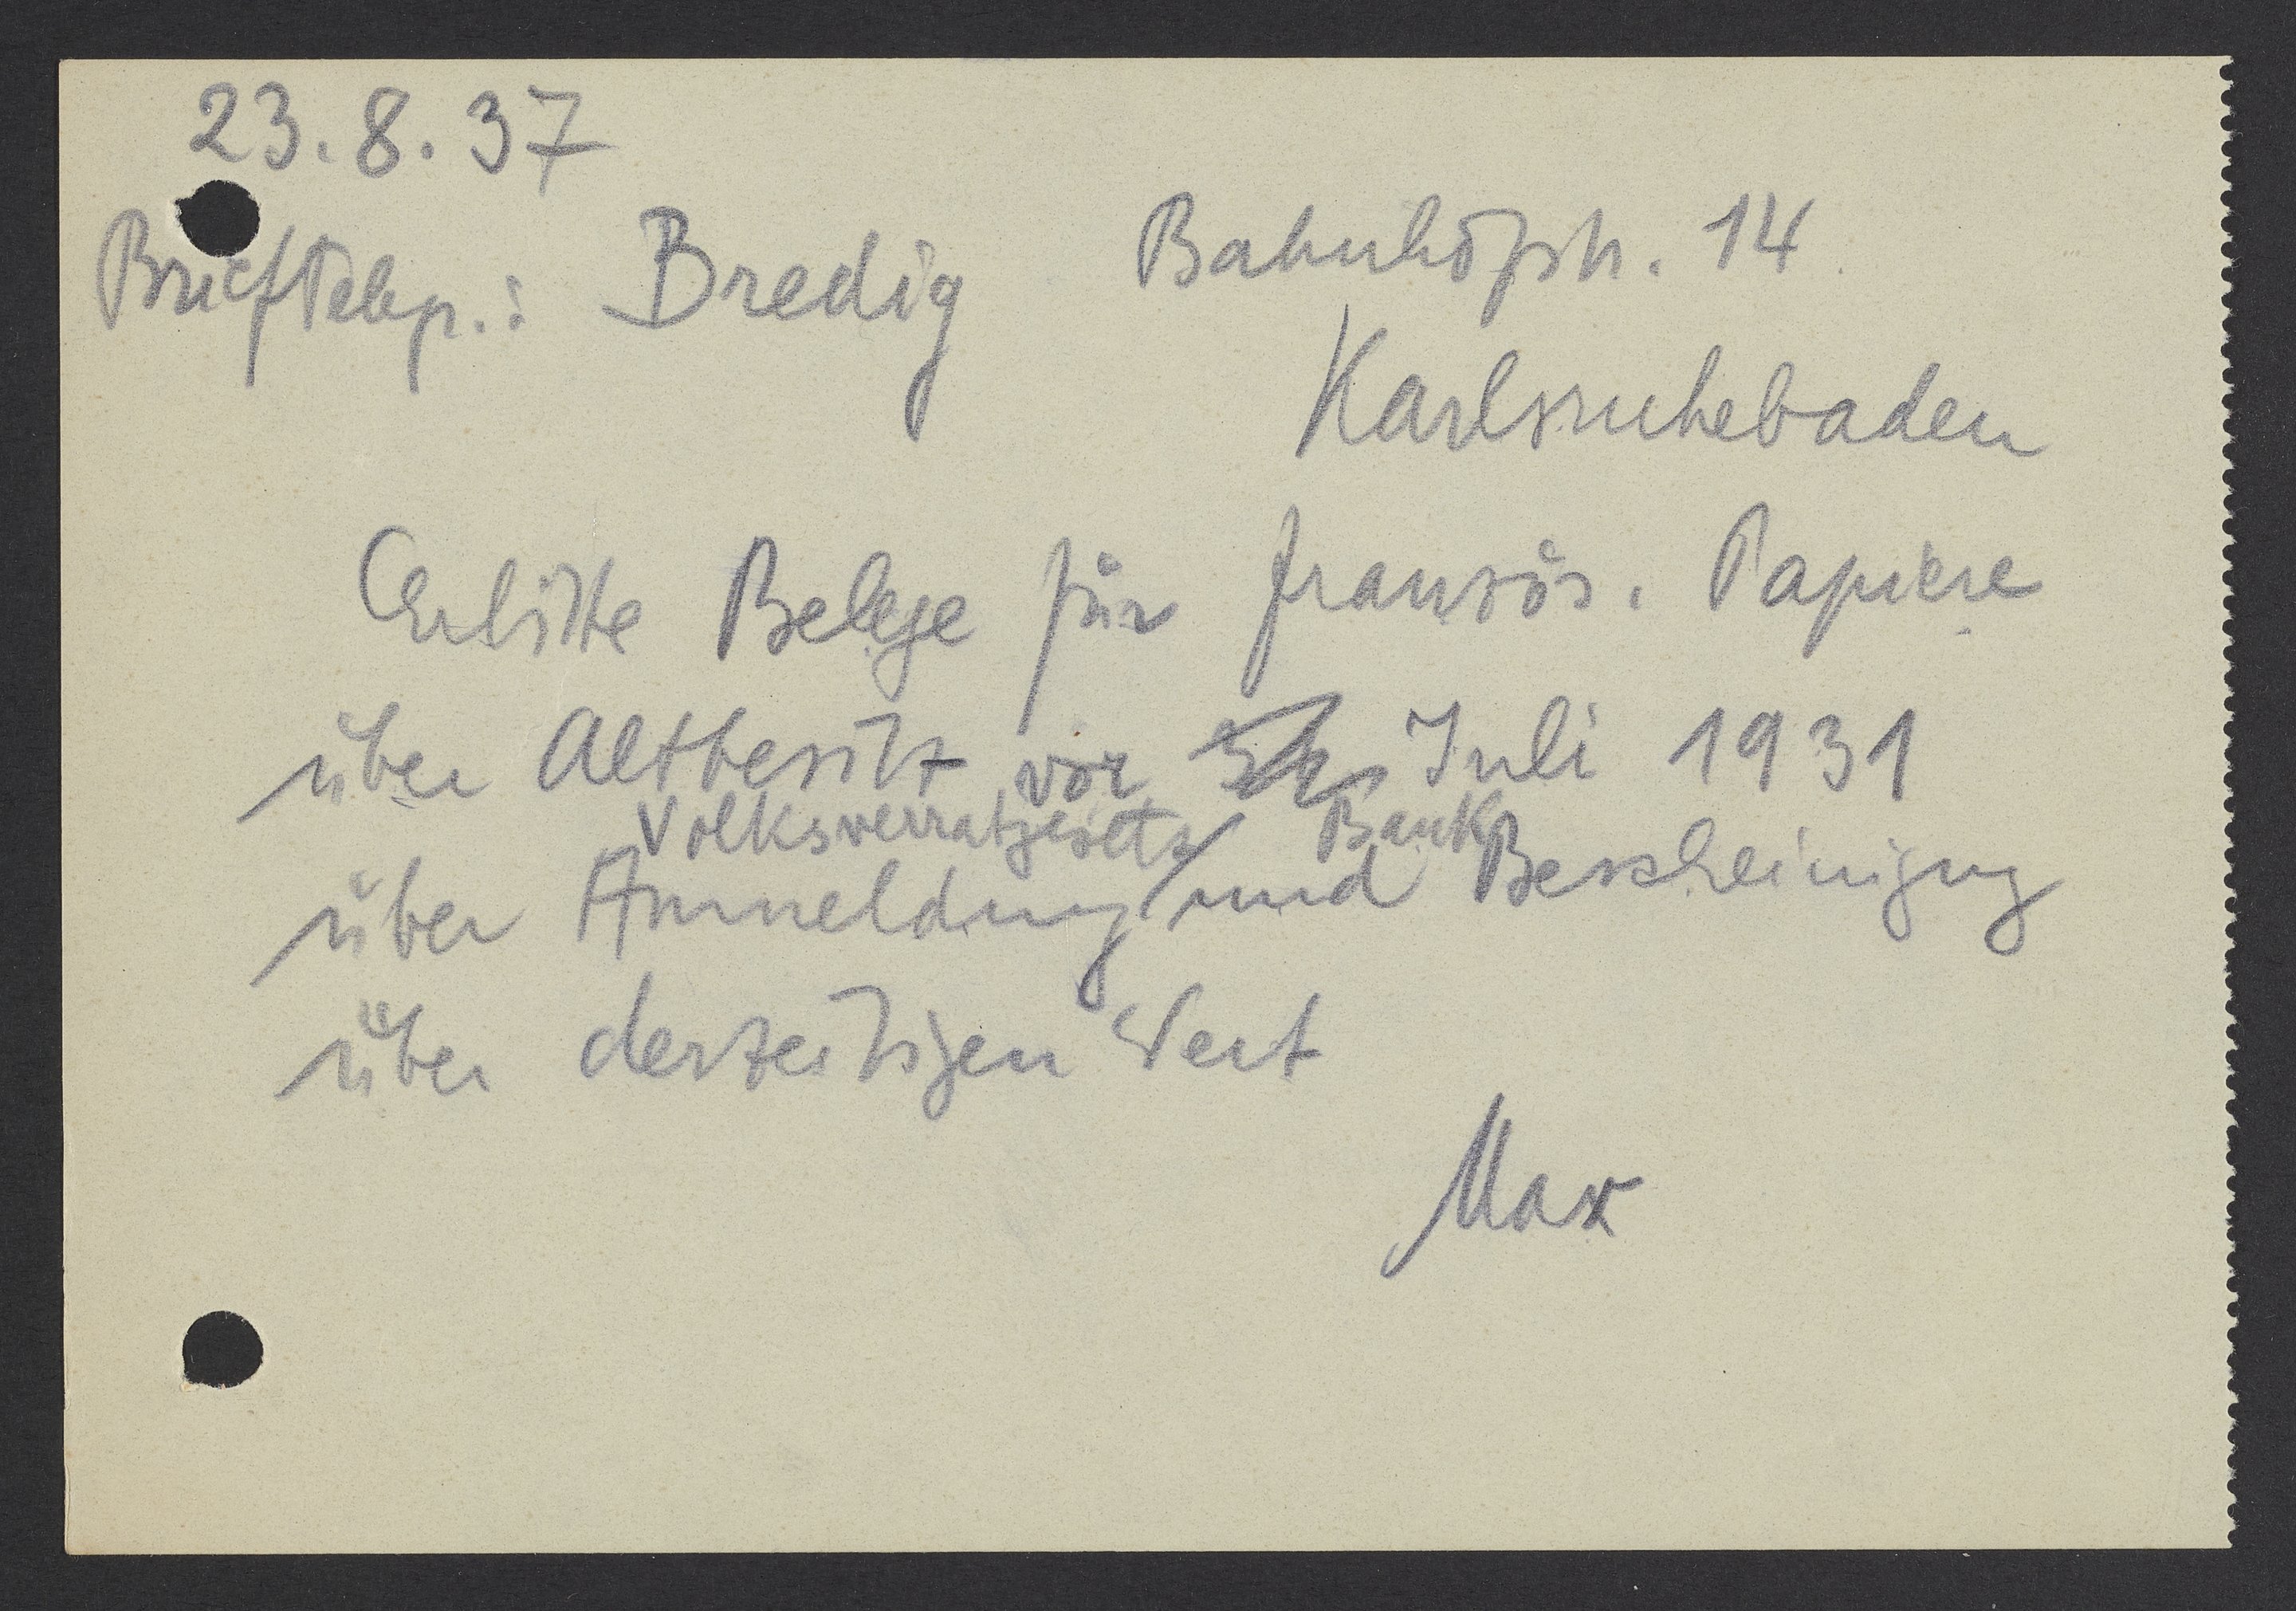 23.8.37
Brieftelegr.: Bredig Bahnhofstr. 14
Karlsruhebaden
Erbitte Belege für französ. Papiere
über Altbesitz vor Juli 1931
Volksverratgesetz Bank
über Anmeldung und Bescheinigung
über derzeitigen Wert
Max